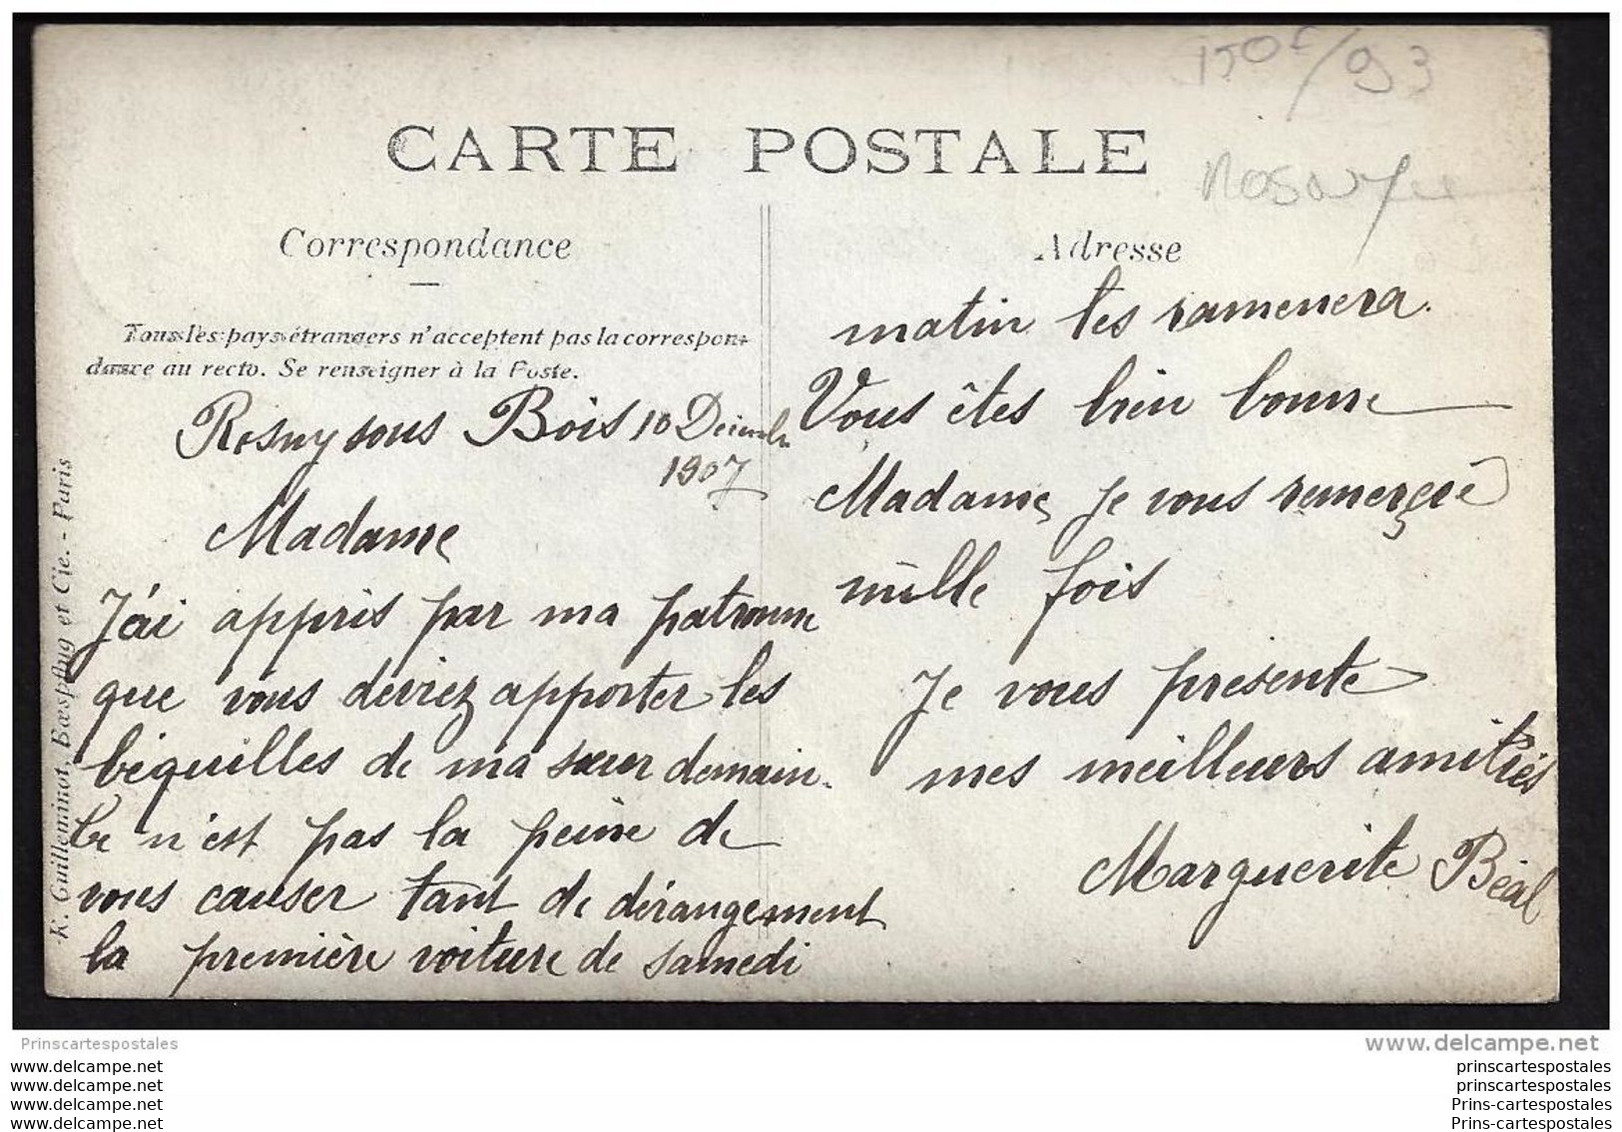 150F/93
CARTE POSTALE
Correspondance
Adresse
Tous les pays étrangers n'acceptent pas la correspon-
dance au recto. Se renseigner à la Poste.
Rosny sous Bois 10 Décembre
1907
Madame
J'ai appris par ma patronne
que vous deviez apporter les
béquilles de ma sœur demain.
Ce n'est pas la peine de
vous causer tant de dérangement
la première voiture de samedi
matin les ramenera.
Vous êtes bien bonne
Madame, je vous remerçie
mille fois
Je vous présente
mes meilleurs amitiés
Marguerite Béal
R. Guilleminot, Bœspflug et Cie. - Paris
Prinscartespostales
www.delcampe.net
www.delcampe.net
www.delcampe.net
www.delcampe.net
www.delcampe.net
prinscartespostales
prinscartespostales
Prins-cartespostales
Prins-cartespostales